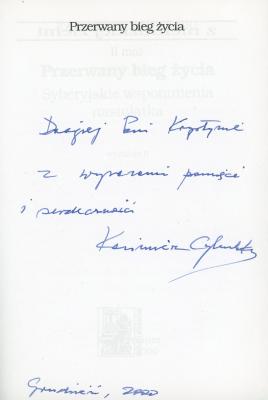 Przerwany bieg życia
II maj
Przerwany bieg życia
Syberyjskie wspomnienia
nastolatka
Drogiej Pani Krystynie
z wyrazami pamięci
i serdeczności
Kazimierz
Grudzień, 2000